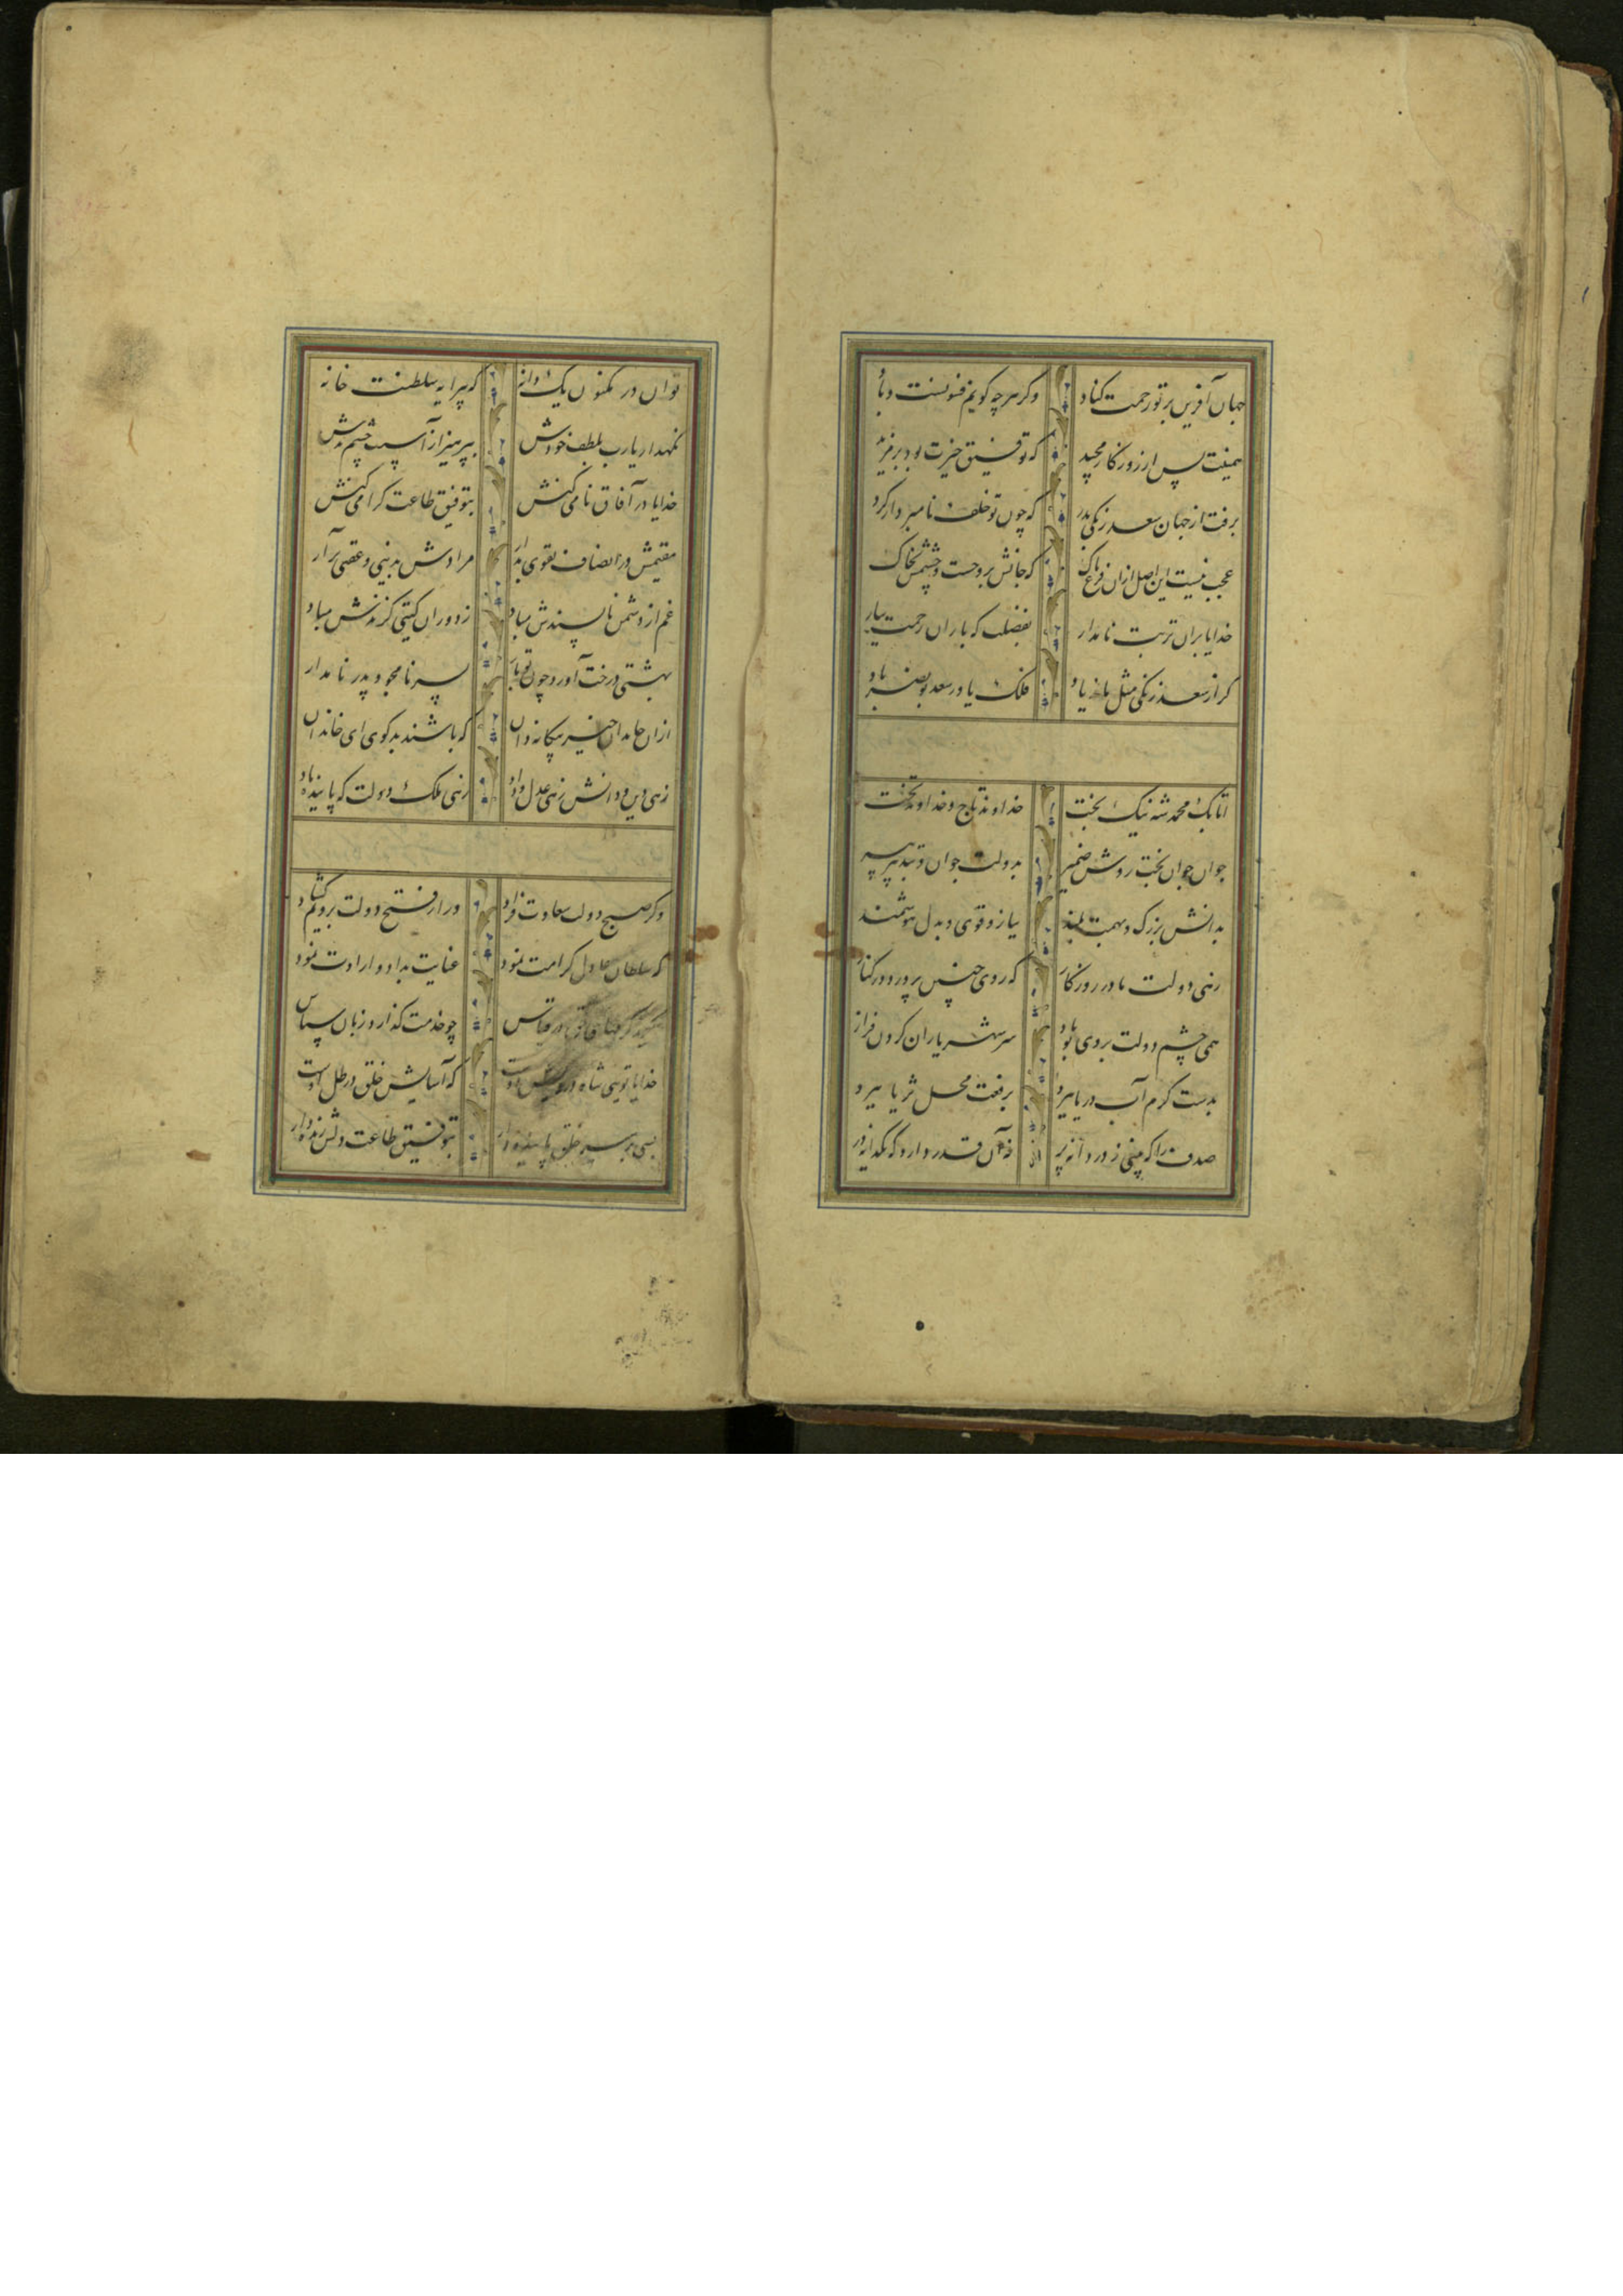 جهان آفرین بر تو رحمت کناد وکر هرچه کویم فسونست و باد
همینت بس از روزکار مجید که توفیق خیرت بود بر مزید
برفت از جهان سعد زنکی بدرد که چون تو خلف نامبردار کرد
عجب نیست این اصل ازان فرع پاک که جانش بروحست و چشمش بخاک
خدایا بران تربت نامدار بفضلت که باران رحمت ببار
کر از سعد زنکی مثل ماند یاد فلک یاور سعد بونصر باد
اتابک محمد شه نیک بخت خداوند تاج و خداوند تخت
جوان جوان بخت روشن ضمیر بدولت جوان و بتدبیر پیر
بدانش بزرک و بهمت بلند ببازو قوی و بدل هوشمند
زهی دولت مادر روزکار که روی چنین پرورد در کنار
همی چشم دولت بروی تو باد سر شهریاران کردن فراز
بدست کرم آب دریا ببرد برفعت محل ثریا ببرد
صدف را که بینی ز دردانه پر نه آن قدر دارد که یکدانه در
توان در مکنون یک دانه که پیرایه سلطنت خانه
نکهدار یارب بلطف خودش بپرهیز از آسیب چشم بدش
خدایا در آفاق نامی کنش بتوفیق طاعت کرامی کنش
مقیمش در انصاف تقوی بدار مرادش بدنیی و عقبی برآر
غم از دشمن ناپسندش مباد ز دوران کیتی کزندش مباد
بهشتی درخت آورد چون تو بار پسر نامجو و پدر نامدار
ازان خاندان خیر بیکانه دان که باشند بدکوی ای خاندان
زهی دین و دانش زهی عدل و داد زهی ملک و دولت که پاینده باد
وکر صبح دولت سعادت فزاد ور از فتح دولت برویم کشاد
که سلطان عادل کرامت نمود عنایت بداد و ارادت نمود
قیاس چو خدمت کذارد زبان سپاس
خدایا تویی شاه درویش دوست که آسایش خلق در ظل اوست
بسی بر سر خلق پاینده دار بتوفیق طاعت دلش زنده دار